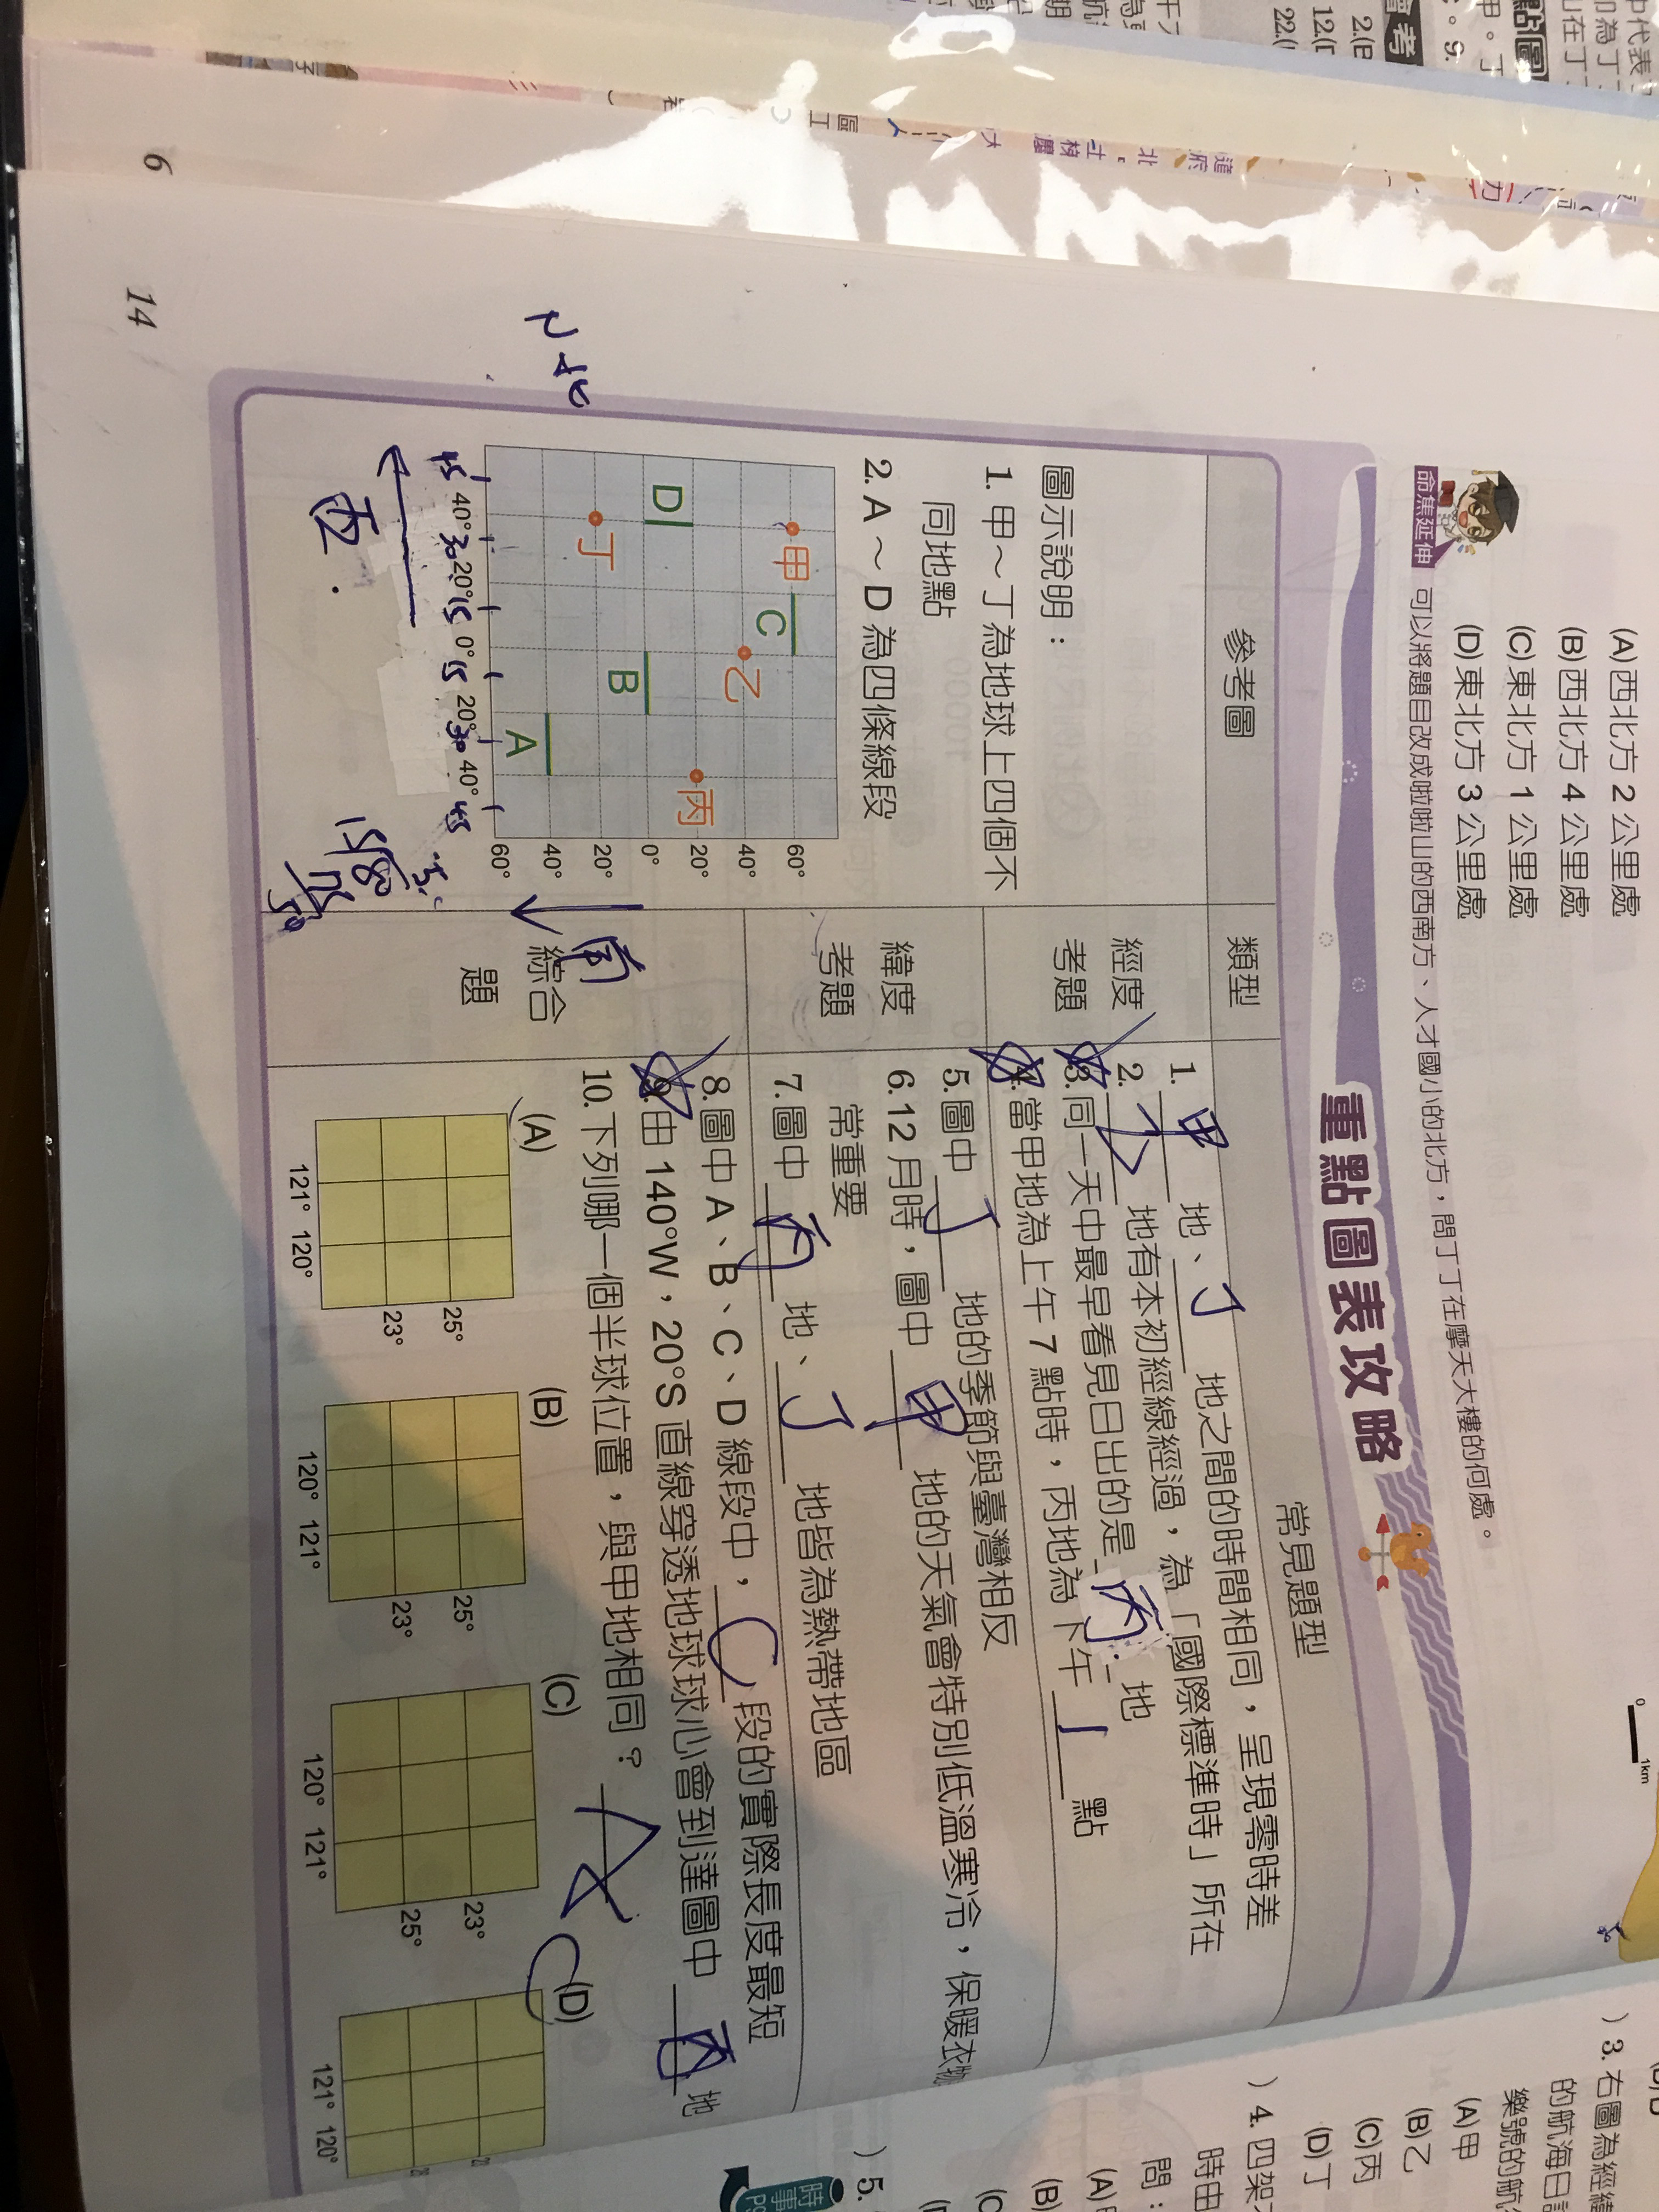 (A)西北方 2 公里處
(B)西北方 4 公里處
(C)東北方 1 公里處
(D)東北方 3 公里處
命焦延伸 可以將題目改成啦啦山的西南方、人才國小的北方，問丁丁在摩天大樓的何處。
0 1km
重點圖表攻略
參考圖 類型 常見題型
圖示說明：
1. 甲～丁為地球上四個不
同地點
2. A～D 為四條線段
甲 C 乙 丙
D B
丁 A
60°
40°
20°
0°
20°
40°
60°
40° 20° 0° 20° 40°
45 30 15 15 30 45
西
南
經度
考題
1. 甲 地、丁 地之間的時間相同，呈現零時差
2. 乙 地有本初經線經過，為「國際標準時」所在
3. 同一天中最早看見日出的是 丙 地
4. 當甲地為上午 7 點時，丙地為下午 1 點
緯度
考題
5. 圖中 丁 地的季節與臺灣相反
6. 12 月時，圖中 甲 地的天氣會特別低溫寒冷，保暖衣物
常重要
7. 圖中 丙 地、丁 地皆為熱帶地區
綜合
題
8. 圖中 A、B、C、D 線段中，C 段的實際長度最短
9. 由 140°W，20°S 直線穿透地球球心會到達圖中 丙 地
10. 下列哪一個半球位置，與甲地相同？ A
(A) (B) (C) (D)
25° 25° 23°
23° 23° 25°
121° 120° 120° 121° 120° 121° 121° 120°
14
6
) 3. 右圖為經緯
的航海日誌
樂號的航
(A)甲
(B)乙
(C)丙
(D)丁
) 4. 四架
時由
問：
(A)
(B)
) 5.
時事